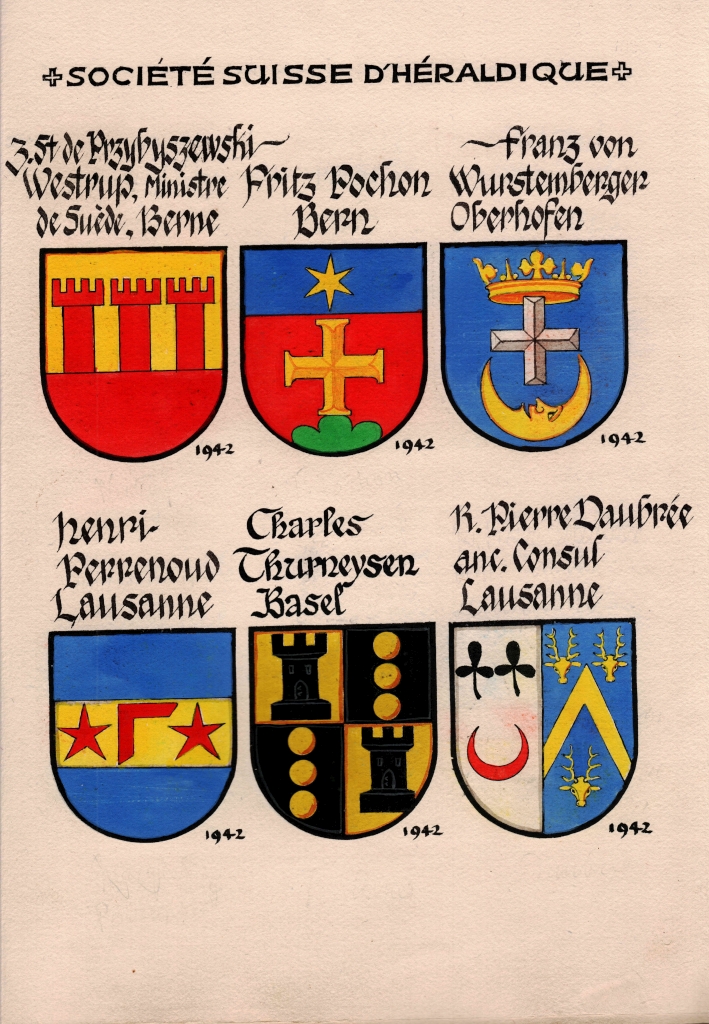 SOCIÉTÉ SUISSE D'HÉRALDIQUE
Z. St de Przybyszewski-
Westrup, Ministre
de Suède, Berne
Fritz Pochon
Bern
Franz von
Wurstemberger
Oberhofen
1942
1942
1942
Henri-
Perrenoud
Lausanne
Charles
Thurneysen
Basel
R. Pierre Daubrée
anc. Consul
Lausanne
1942
1942
1942